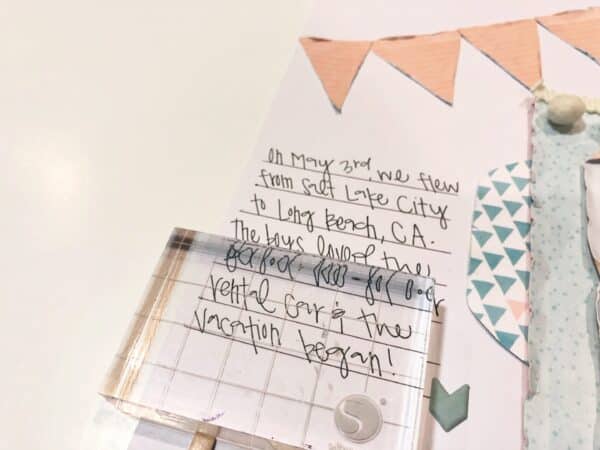 On May 3rd, we flew
from Salt Lake City
to Long Beach, CA.
The boys loved the
rental car & the
vacation began!